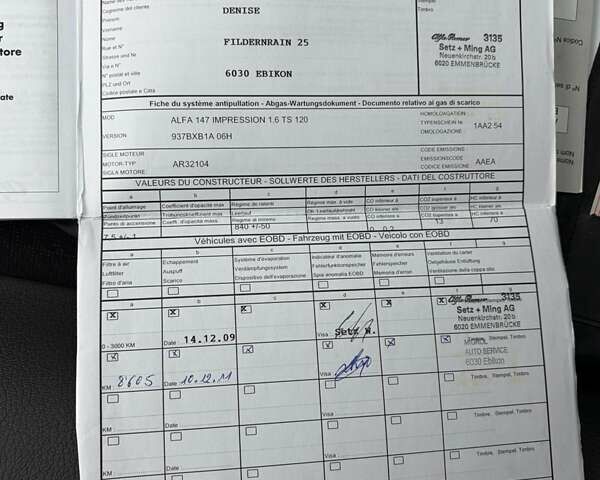 DENISE
Cognome del cliente
Prénom
Vorname
Nome
Rue et N°
FILDERNRAIN 25
Strasse und Nr
Via e N°
N° postal et ville
6030 EBIKON
PLZ und Ort
Codice postale e Città
Timbro
Alfa Romeo 3135
Setz + Ming AG
Neuenkirchstr. 20b
6020 EMMENBRÜCKE
Fiche du système antipullation - Abgas-Wartungsdokument - Documento relativo al gas di scarico
MOD
ALFA 147 IMPRESSION 1.6 TS 120
HOMOLOGATION
TYPENSCHEIN Nr
1AA2 54
OMOLOGAZIONE
VERSION
937BXB1A 06H
SIGLE MOTEUR
MOTOR-TYP
AR32104
SIGLA MOTORE
CODE EMISSIONS
EMISSIONSCODE
AAEA
CODICE EMISSIONI
VALEURS DU CONSTRUCTEUR - SOLLWERTE DES HERSTELLERS - DATI DEL COSTRUTTORE
a b c d e f g
Point d'allumage
Zündzeitpunkt
Punto di accensione
Coefficient d'opacity max
Trübungskoeffizient max
Coeff. d'opacità max
Régime de ralenti
Leerlauf
Regime al minimo
Régime max. à vide
Regime mass. a vuoto
CO inférieur à
CO kleiner als
CO inferiore a
CO2 supérieur à
HC inférieur à
HC kleiner als
HC inferiore a
7.5 +/- 1
840 +/-50
0.2
13
70
Véhicules avec EOBD - Fahrzeug mit EOBD - Veicolo con EOBD
a b c d e f g
Filtre à air
Luftfilter
Filtro d'aria
Echappement
Auspuff
Scarico
Système d'évaporation
Verdämpfungssystem
Dispositivo dell'evaporazione
Indicateur d'anomalie
Fehlerfunktionsanzeige
Spia anomalia EOBD
Mémoire d'erreurs
Fehlerspeicher
Memoria d'errori
Ventilation du carter
Gehäuse Entlüftung
Ventilazione della coppa olio
Alfa Romeo 3135
Setz + Ming AG
Neuenkirchstr. 20 b
6020 EMMENBRÜCKE
0 - 3000 KM
Date : 14.12.09
Visa : Setz W.
Stempel, Timbro
AUTO SERVICE
6030 Ebikon
KM : 8605
Date : 10.12.11
Visa :
Timbre, Stempel, Timbro
KM :
Date :
Visa :
Timbre, Stempel, Timbro
KM :
Date :
Visa :
Timbre, Stempel, Timbro